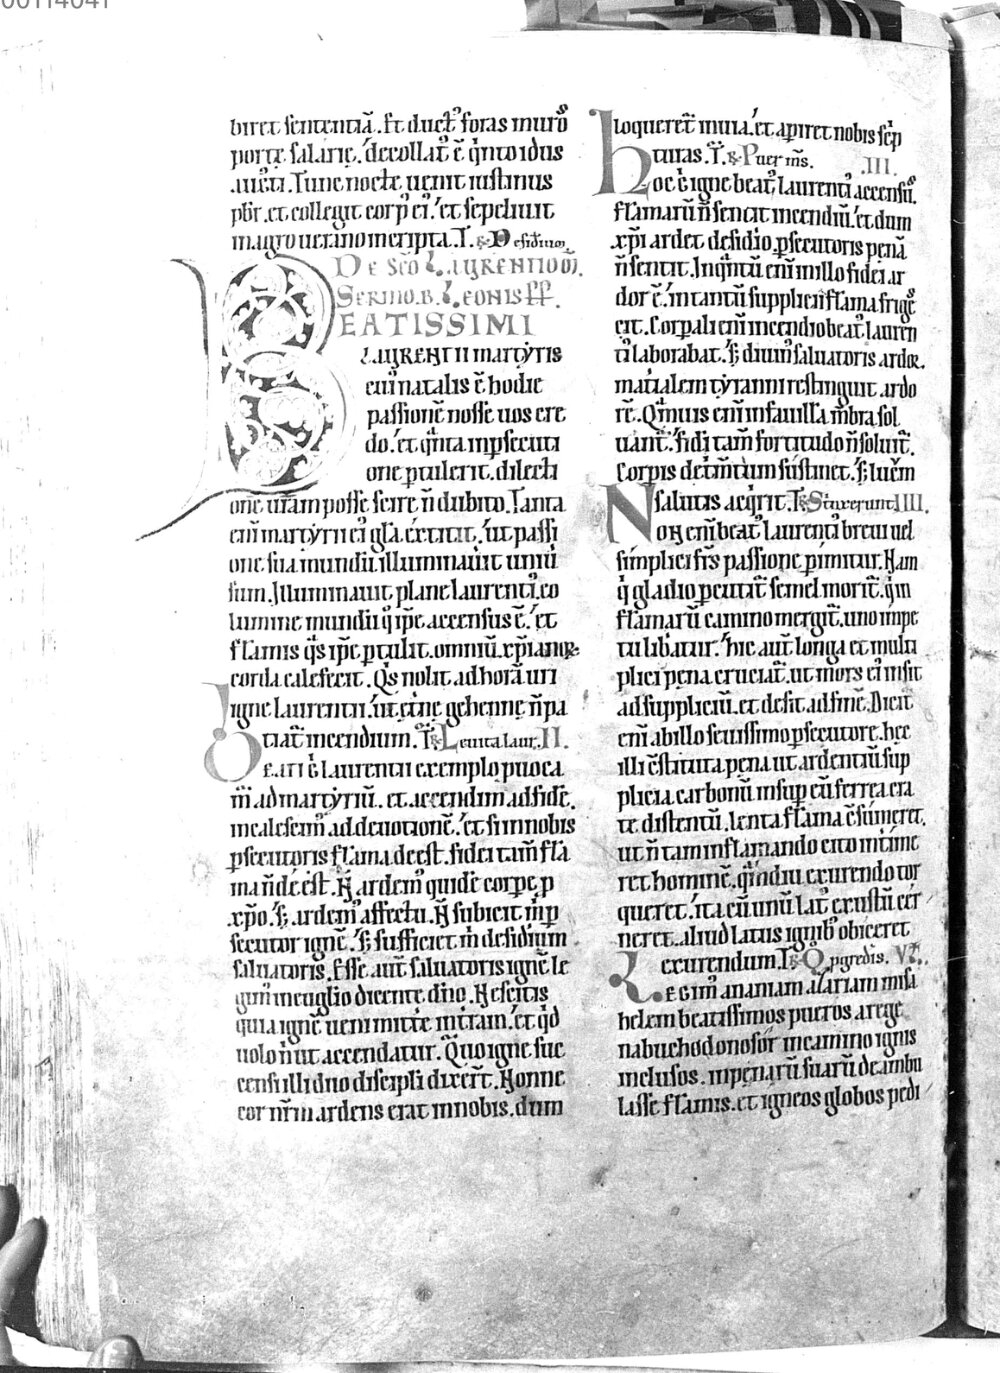 00114041
biret sententiā. Et duct᷒ foras muro᷒
portę salarię. decollat᷒ ē qⁱnto idus
augᵗi. Tunc nocte uenit iustinus
pb̄r. et collegit corp᷒ ei᷒. et sepeliuit
in agro uerano in cripta. T. R̷ Desideriū
DE SC̄O LAURENTIO OM̄.
SERMO.B.LEONIS P̄P̄.
BEATISSIMI
LAURENTII martyris
cui᷒ natalis ē hodie
passionē nosse uos cre
do. et qͣnta in p̱secuti
one p̱tulerit. dilecti
onē urām posse scire n̄ dubito. Tanta
eni᷒ martyrii ei᷒ gl̄a extitit. ut passi
one sua mundū illuminauit uniū
sum. Illuminauit plane laurenti᷒ eo
lumine mundū qͦ ip̄e accensus ē. et
flāmis qͣs ip̄e p̱tulit. omniū xp̄ianoꝝ
corda calefecit. Qͥs nolit ad horā uri
igne laurentii. ut et̄nę gehennę n̄ pa
tiat᷒ incendium. T̄. R̷ Leuita laur. II.
Beati g̊ laurentii exemplo puoca
m̄ ad martyriū. et accendim᷒ ad fidē.
incalescim᷒ ad deuotionē. et si in nobis
p̱secutoris flāma deest. fidei tam̄ flā
ma n̄ deest. N̄ ardem᷒ quidē corpe p̱
xp̄o. S̄ ardem᷒ affectu. N̄ subicit m̄ p̱
secutor ignē. S̄ sufficiet m̄ desidium
saluatoris. Esse aut̄ saluatoris ignē le
gim᷒ in eu̅glio dicente dn̄o. Nescitis
quia ignē ueni mittē in trām. et qͥd
uolo nⁱ ut accendatur. Quo igne suc
censi illi duo discipli dixert̄. Nonne
cor nr̄m ardens erat in nobis. dum
loqueret᷒ in uia. et apiret nobis sc̄p
turas. T̄. R̷ Puer m̄s. .III.
Hoc g̊ igne beat᷒ laurenti᷒ accensus᷒.
flāmarū n̄ sentit incendiū. et dum
xp̄i ardet desidio. p̱secutoris penā
n̄ sentit. Inqͣntū eni᷒ in illo fidei ar
dor ē. in tantū supplicii flāma frigᵉs
cit. Corpali eni᷒ incendio beat᷒ lauren
ti᷒ laborabat. S̄ diuin᷒ saluatoris ardor.
matialem tyranni restinguit ardo
rē. Qͣmuis eni᷒ in fauilla mb̄ra sol
uant᷒. fidi tam̄ fortitudo n̄ soluit᷒.
Corpis detim̄tum sustinet. S̄ lucr̄m
salutis acqⁱrit. T. R̷ Strinxerunt IIII.
Non eni᷒ beat᷒ laurenti᷒ breui uel
simplici fr̄s passione p̱imitur. Nam
qⁱ gladio p̱cutit᷒ semel morit᷒. qⁱ in
flāmarū camino mergit᷒. uno impe
tu libatur. hic aut̄ longa et multi
plici pena cruciat᷒. ut mors ei n̄ sit
ad suppliciū. et desit ad finē. Dicit᷒
eni᷒ ab illo seuissimo p̱secutore. hec
illi c̄stituta pena ut ardentiū sup
plicia carbonū insup eū ferrea cra
te distentū. lenta flāma c̄sumeret.
ut n̄ tam inflamando cito int̄ime
ret hominē. qͣm diu exurendo tor
queret. ita cū unū lat᷒ exustū cer
neret. aliud latus ignib᷒ obiceret
exurendum. T. R̷ Q̄ pgredis. V᷒.
Legim᷒ ananiam azariam misa
helem beatissimos pueros a rege
nabuchodonosor in camino ignis
inclusos. in penarū suarū deambu
lasse flāmis. et igneos globos pedi